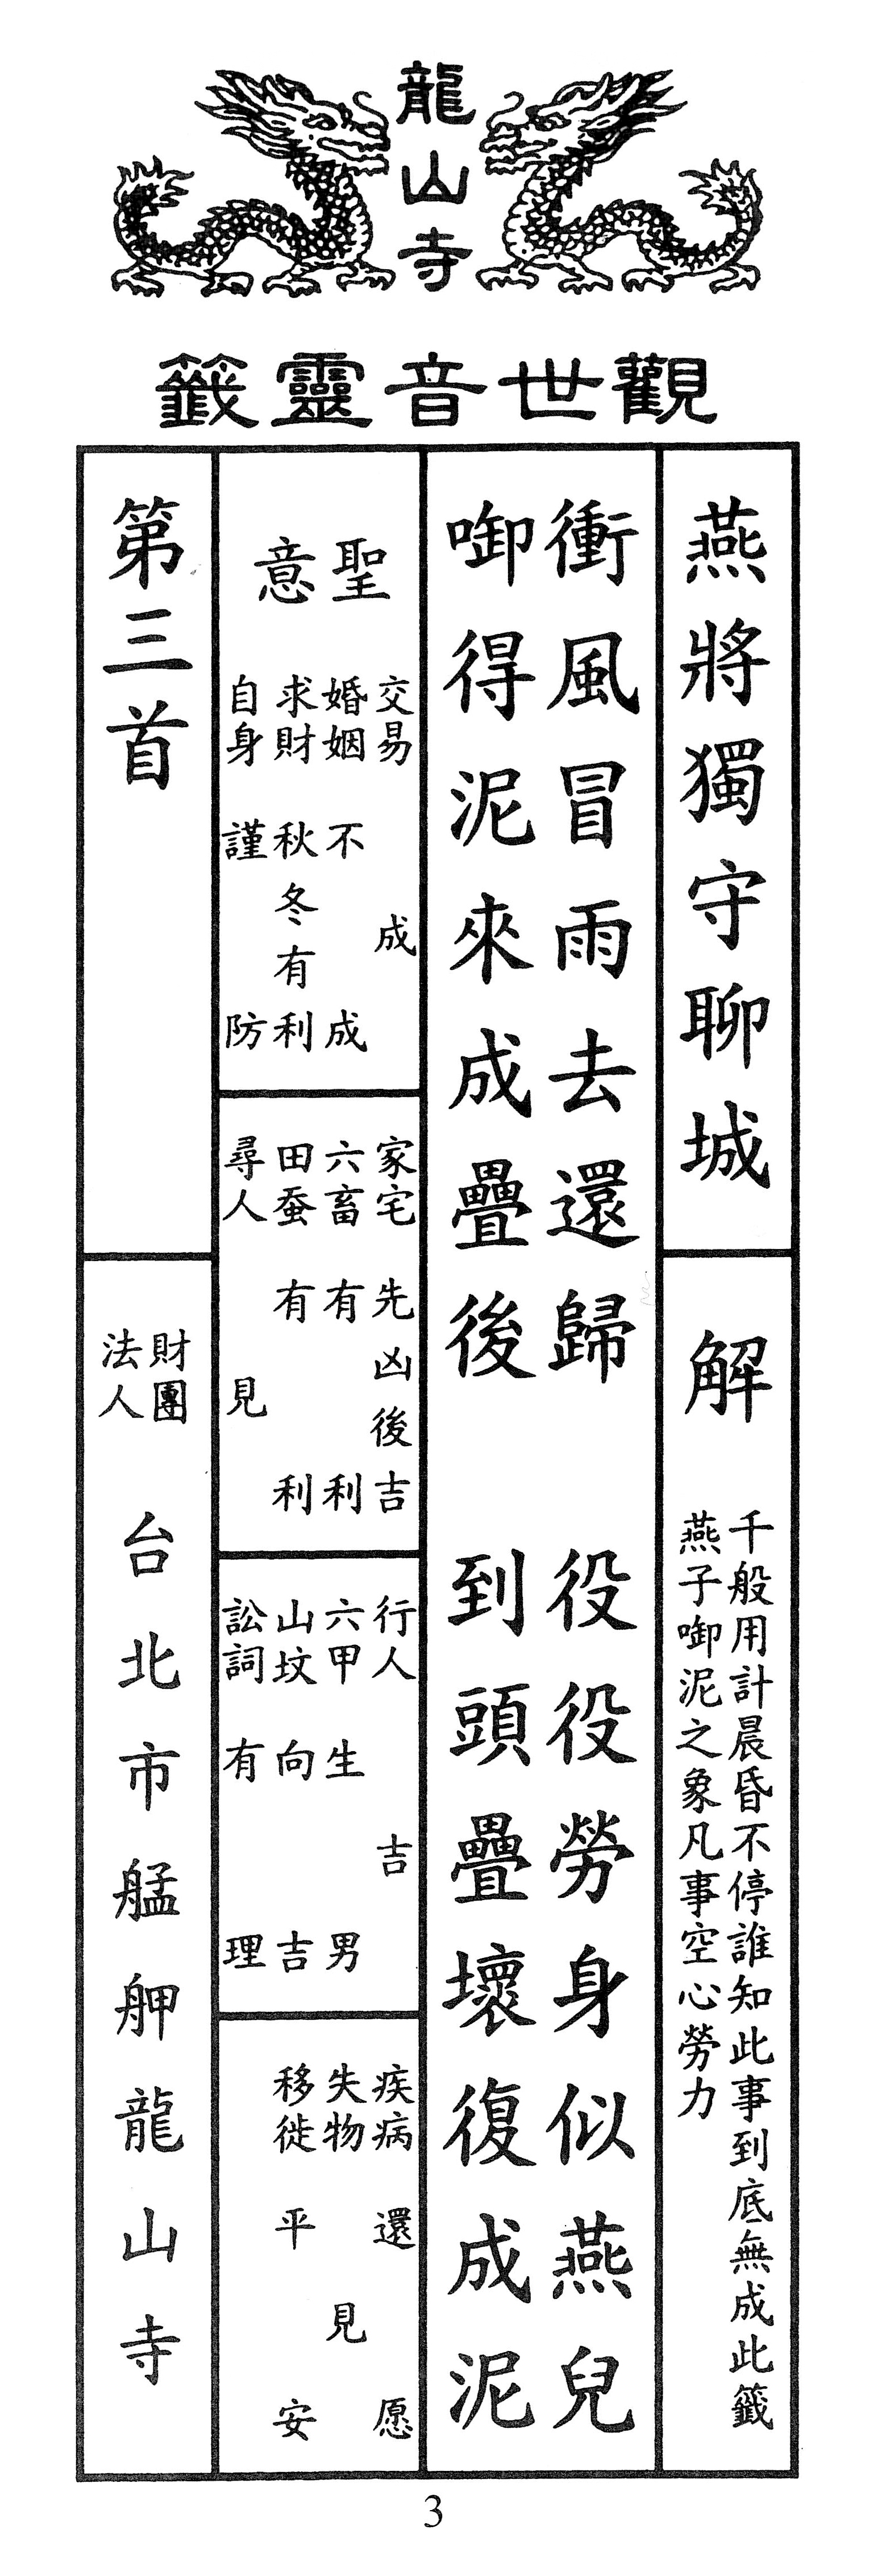 龍山寺
觀世音靈籤
燕將獨守聊城
解
千般用計晨昏不停誰知此事到底無成此籤
燕子啣泥之象凡事空心勞力
衝風冒雨去還歸　役役勞身似燕兒
啣得泥來成疊後　到頭疊壞復成泥
聖意
交易　成
婚姻　不成
求財　秋冬有利
自身　謹防
家宅　先凶後吉
六畜　有利
田蚕　有利
尋人　見
行人　吉
六甲　生男
山坟　向吉
訟詞　有理
疾病　還愿
失物　見
移徙　平安
第三首
財團法人
台北市艋舺龍山寺
3